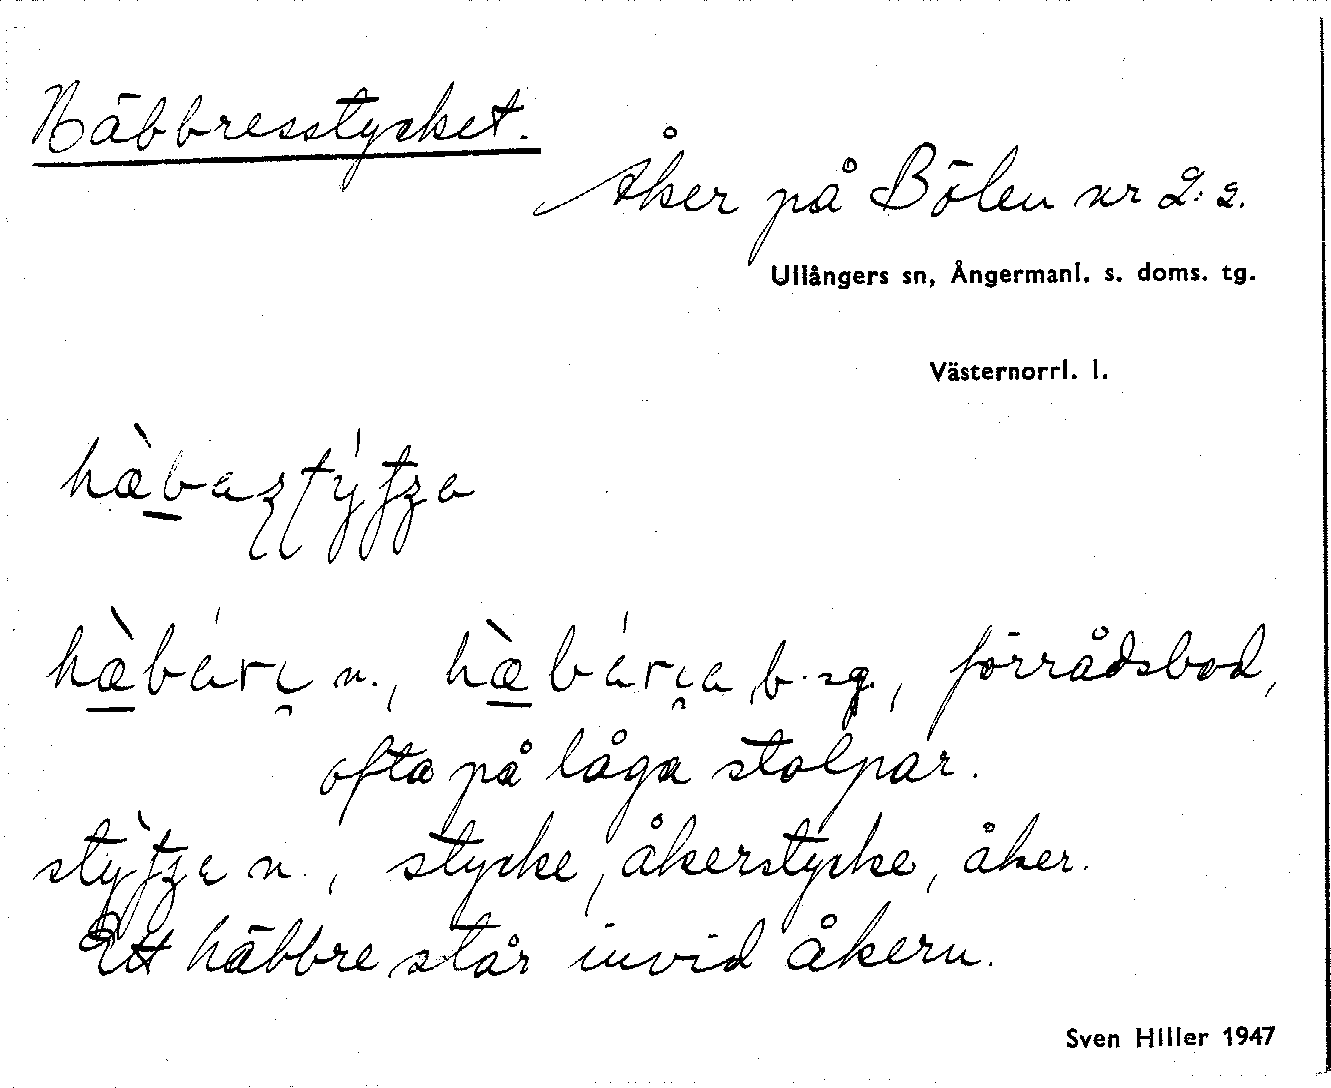 Häbbresstycket.
Åker på Bölen nr 2:2.
Ullångers sn, Ångermanl. s. doms. tg.
Västernorrl. l.
n., b. sg., förrådsbod,
ofta på låga stolpar.
n., stycke, åkerstycke, åker.
Ett häbbre står invid åkern.
Sven Hiller 1947